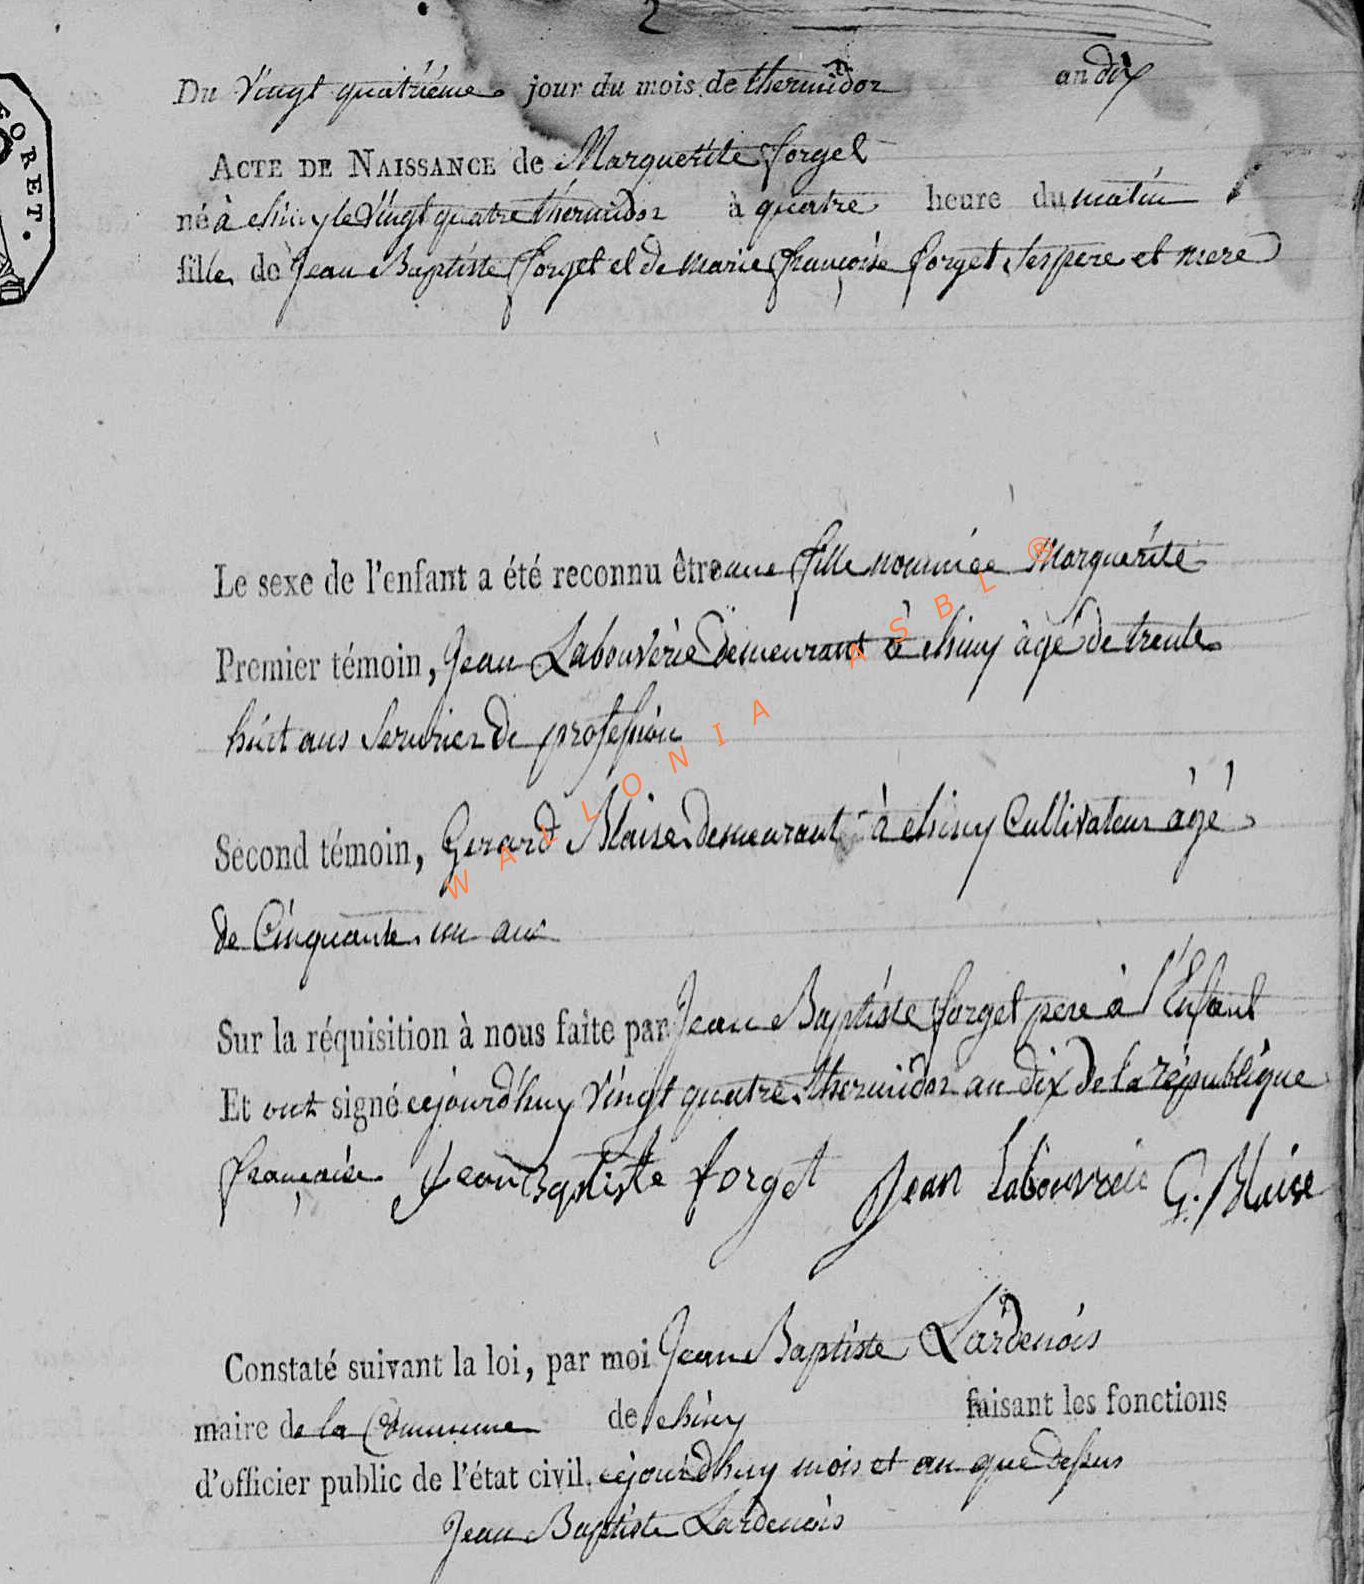 2
FORET.
Du Vingt quatriéme jour du mois de thermidor an dix
ACTE DE NAISSANCE de Marguerite forget
né à chiny le Vingt quatre thermidor à quatre heure du matin
fille de Jean Baptiste forget et de marie françoise forget ses pere et mere
Le sexe de l'enfant a été reconnu être une fille nommée Marguerite
Premier témoin, Jean Labouverie demeurant à chiny âgé de trente
huit ans serurier de profession
Second témoin, Gerard Blaise demeurant à chiny Cultivateur âgé
de Cinquante un ans
Sur la réquisition à nous faite par Jean Baptiste forget pere à l'Enfant
Et ont signé cejourd'huy Vingt quatre thermidor an dix de la république
française Jean Baptiste forget Jean Labouvrie G. Blaise
Constaté suivant la loi, par moi Jean Baptiste Lardenois
maire de la Commune de chiny faisant les fonctions
d'officier public de l'état civil. cejourdhuy mois et an que dessus
Jean Baptiste Lardenois
WALLONIA ASBL ®